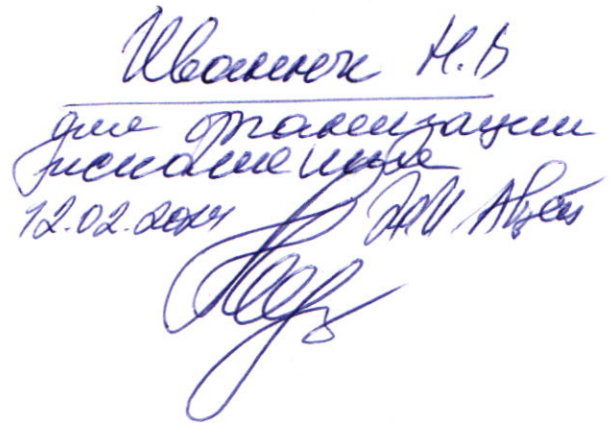 Иванюк Н.В
для организации
исполнения
12.02.2024